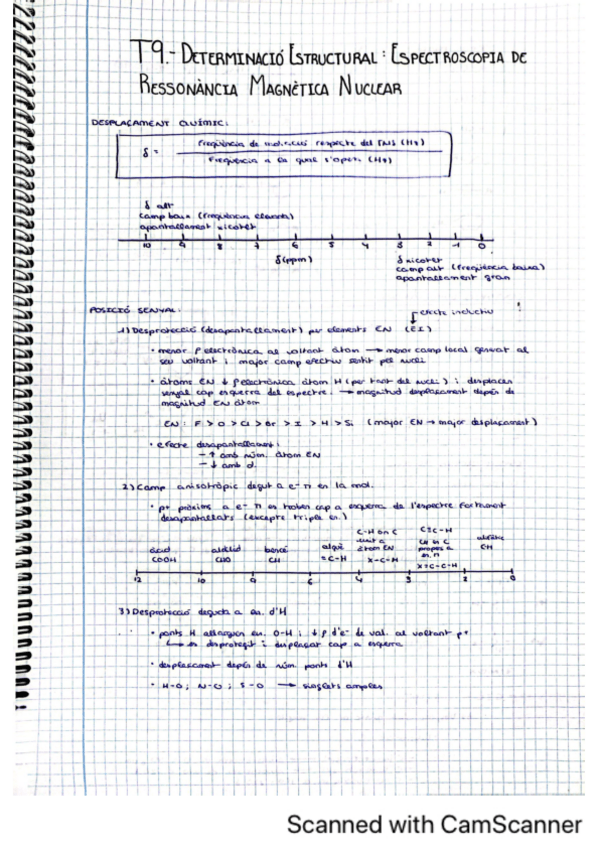 T9.- DETERMINACIÓ ESTRUCTURAL: ESPECTROSCOPIA DE
RESSONÀNCIA MAGNÈTICA NUCLEAR
DESPLAÇAMENT QUÍMIC:
δ = Freqüència de respecte del TMS (Hz)
Freqüència a la qual s'opera (Hz)
δ alt
camp baix (freqüència elevada)
apantallament xicotet
10 9 8 7 6 5 4 3 2 1 0
δ (ppm)
δ xicotet
camp alt (freqüència baixa)
apantallament gran
POSICIÓ SENYAL:
efecte inductiu
!
1) Desprotecció (desapantallament) per elements EN (EI)
• menor ρ electrònica al voltant àtom → menor camp local generat al
seu voltant i major camp efectiu sentit pel nucli
• àtoms EN ↓ ρ electrònica àtom H (per tant del nucli) i desplacen
senyal cap esquerra del espectre. → magnitud desplaçament depén de
magnitud EN àtom
EN: F > O > Cl > Br > I > H > Si (major EN → major desplaçament)
• efecte desapantallament:
- ↑ amb núm. àtom EN
- ↓ amb d.
2) Camp anisotròpic degut a e- π en la mol.
• p+ pròxims a e- π es troben cap a esquerra de l'espectre fortament
desapantallats (excepte triple en.)
àcid
COOH
aldehid
CHO
benzé
CH
alqè
=C-H
C-H on C
unit a
àtom EN
X-C-H
C≡C-H
CH on C
pròxim a
en. π
X=C-C-H
CH
12 10 8 6 4 3 2 0
3) Desprotecció deguda a en. d'H
• ponts H allarguen en. O-H i ↓ ρ d'e- de val. al voltant p+
↳ es desprotegit i desplaçat cap a esquerra
• desplaçament depén de núm. ponts d'H
• H-O; N-O; S-O → singlets amples
Scanned with CamScanner